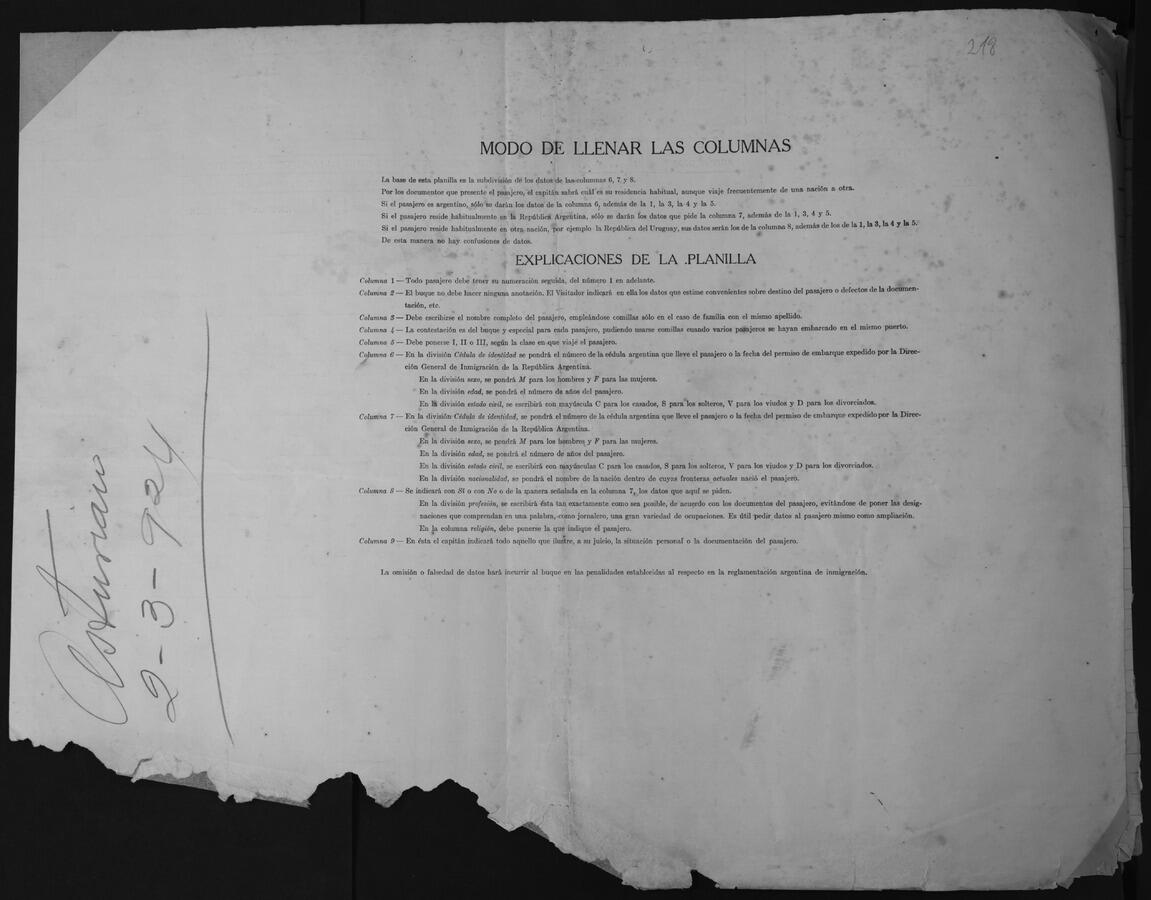 218
MODO DE LLENAR LAS COLUMNAS
La base de esta planilla es la subdivisión de los datos de las columnas 6, 7 y 8.
Por los documentos que presente el pasajero, el capitán sabrá cuál es su residencia habitual, aunque viaje frecuentemente de una nación a otra.
Si el pasajero es argentino, sólo se darán los datos de la columna 6, además de la 1, la 3, la 4 y la 5.
Si el pasajero reside habitualmente en la República Argentina, sólo se darán los datos que pide la columna 7, además de la 1, 3, 4 y 5.
Si el pasajero reside habitualmente en otra nación, por ejemplo la República del Uruguay, sus datos serán los de la columna 8, además de los de la 1, la 3, la 4 y la 5.
De esta manera no hay confusiones de datos.
EXPLICACIONES DE LA PLANILLA
Columna 1 — Todo pasajero debe tener su numeración seguida, del número 1 en adelante.
Columna 2 — El buque no debe hacer ninguna anotación. El Visitador indicará en ella los datos que estime convenientes sobre destino del pasajero o defectos de la documen-
tación, etc.
Columna 3 — Debe escribirse el nombre completo del pasajero, empleándose comillas sólo en el caso de familia con el mismo apellido.
Columna 4 — La contestación es del buque y especial para cada pasajero, pudiendo usarse comillas cuando varios pasajeros se hayan embarcado en el mismo puerto.
Columna 5 — Debe ponerse I, II o III, según la clase en que viaje el pasajero.
Columna 6 — En la división Cédula de identidad se pondrá el número de la cédula argentina que lleve el pasajero o la fecha del permiso de embarque expedido por la Direc-
ción General de Inmigración de la República Argentina.
En la división sexo, se pondrá M para los hombres y F para las mujeres.
En la división edad, se pondrá el número de años del pasajero.
En la división estado civil, se escribirá con mayúscula C para los casados, S para los solteros, V para los viudos y D para los divorciados.
Columna 7 — En la división Cédula de identidad, se pondrá el número de la cédula argentina que lleve el pasajero o la fecha del permiso de embarque expedido por la Direc-
ción General de Inmigración de la República Argentina.
En la división sexo, se pondrá M para los hombres y F para las mujeres.
En la división edad, se pondrá el número de años del pasajero.
En la división estado civil, se escribirá con mayúsculas C para los casados, S para los solteros, V para los viudos y D para los divorciados.
En la división nacionalidad, se pondrá el nombre de la nación dentro de cuyas fronteras actuales nació el pasajero.
Columna 8 — Se indicará con Sí o con No o de la manera señalada en la columna 7, los datos que aquí se piden.
En la división profesión, se escribirá ésta tan exactamente como sea posible, de acuerdo con los documentos del pasajero, evitándose de poner las desig-
naciones que comprendan en una palabra, como jornalero, una gran variedad de ocupaciones. Es útil pedir datos al pasajero mismo como ampliación.
En la columna religión, debe ponerse la que indique el pasajero.
Columna 9 — En ésta el capitán indicará todo aquello que ilustre, a su juicio, la situación personal o la documentación del pasajero.
La omisión o falsedad de datos hará incurrir al buque en las penalidades establecidas al respecto en la reglamentación argentina de inmigración.
Asturiano
2-3-924